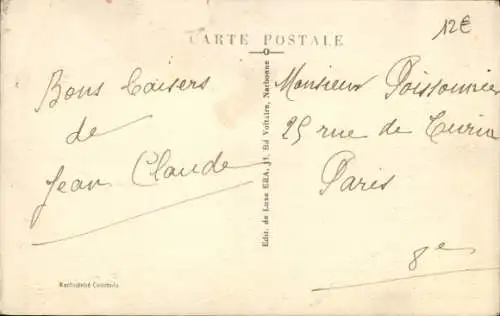 CARTE POSTALE
12€
Bons baisers
de
Jean Claude
Edit. de Luxe ERA, 11, Bd Voltaire, Narbonne
Monsieur Poissonnier
25 rue de Turin
Paris
8e